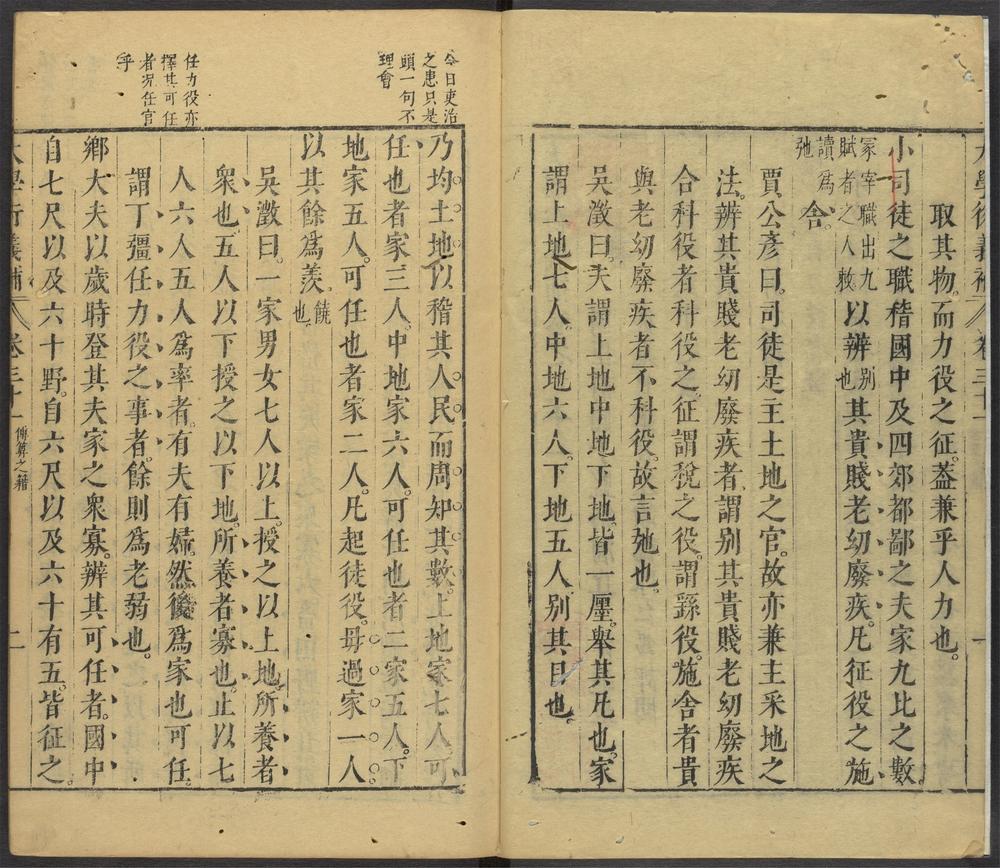 大學衍義補 卷三十一
取其物而力役之征蓋兼乎人力也
小司徒之職稽國中及四郊都鄙之夫家九比之數
冢宰職出九
賦者之人數
以辨
别
也
其貴賤老幼廢疾凡征役之施
讀爲
弛
舍
賈公彥曰司徒是主土地之官故亦兼主采地之
法辨其貴賤老幼廢疾者謂别其貴賤老幼廢疾
合科役者科役之征謂稅之役謂繇役施舍者貴
與老幼廢疾者不科役故言弛也
吳澂曰夫謂上地中地下地皆一厘舉其凡也家
謂上地七人中地六人下地五人别其目也
今日吏治
之患只是
頭一句不
理會
乃均土地以稽其人民而周知其數上地家七人可
任也者家三人中地家六人可任也者二家五人下
地家五人可任也者家二人凡起徒役毋過家一人
以其餘爲羨
饒
也
吳澂曰一家男女七人以上授之以上地所養者
衆也五人以下授之以下地所養者寡也止以七
任力役亦
擇其可任
者况任官
乎
人六人五人爲率者有夫有婦然後爲家也可任
謂丁彊任力役之事者餘則爲老弱也
鄉大夫以歲時登其夫家之衆寡辨其可任者國中
自七尺以及六十野自六尺以及六十有五皆征之
大學衍義補 卷三十一 傅算之籍 二